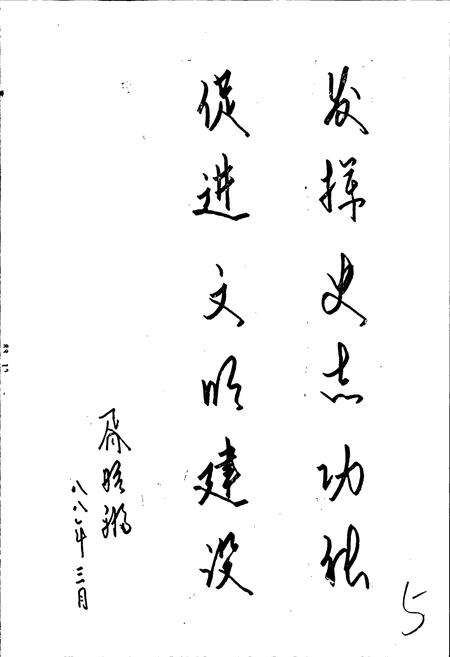 发挥史志功能
促进文明建设
八八年三月
5